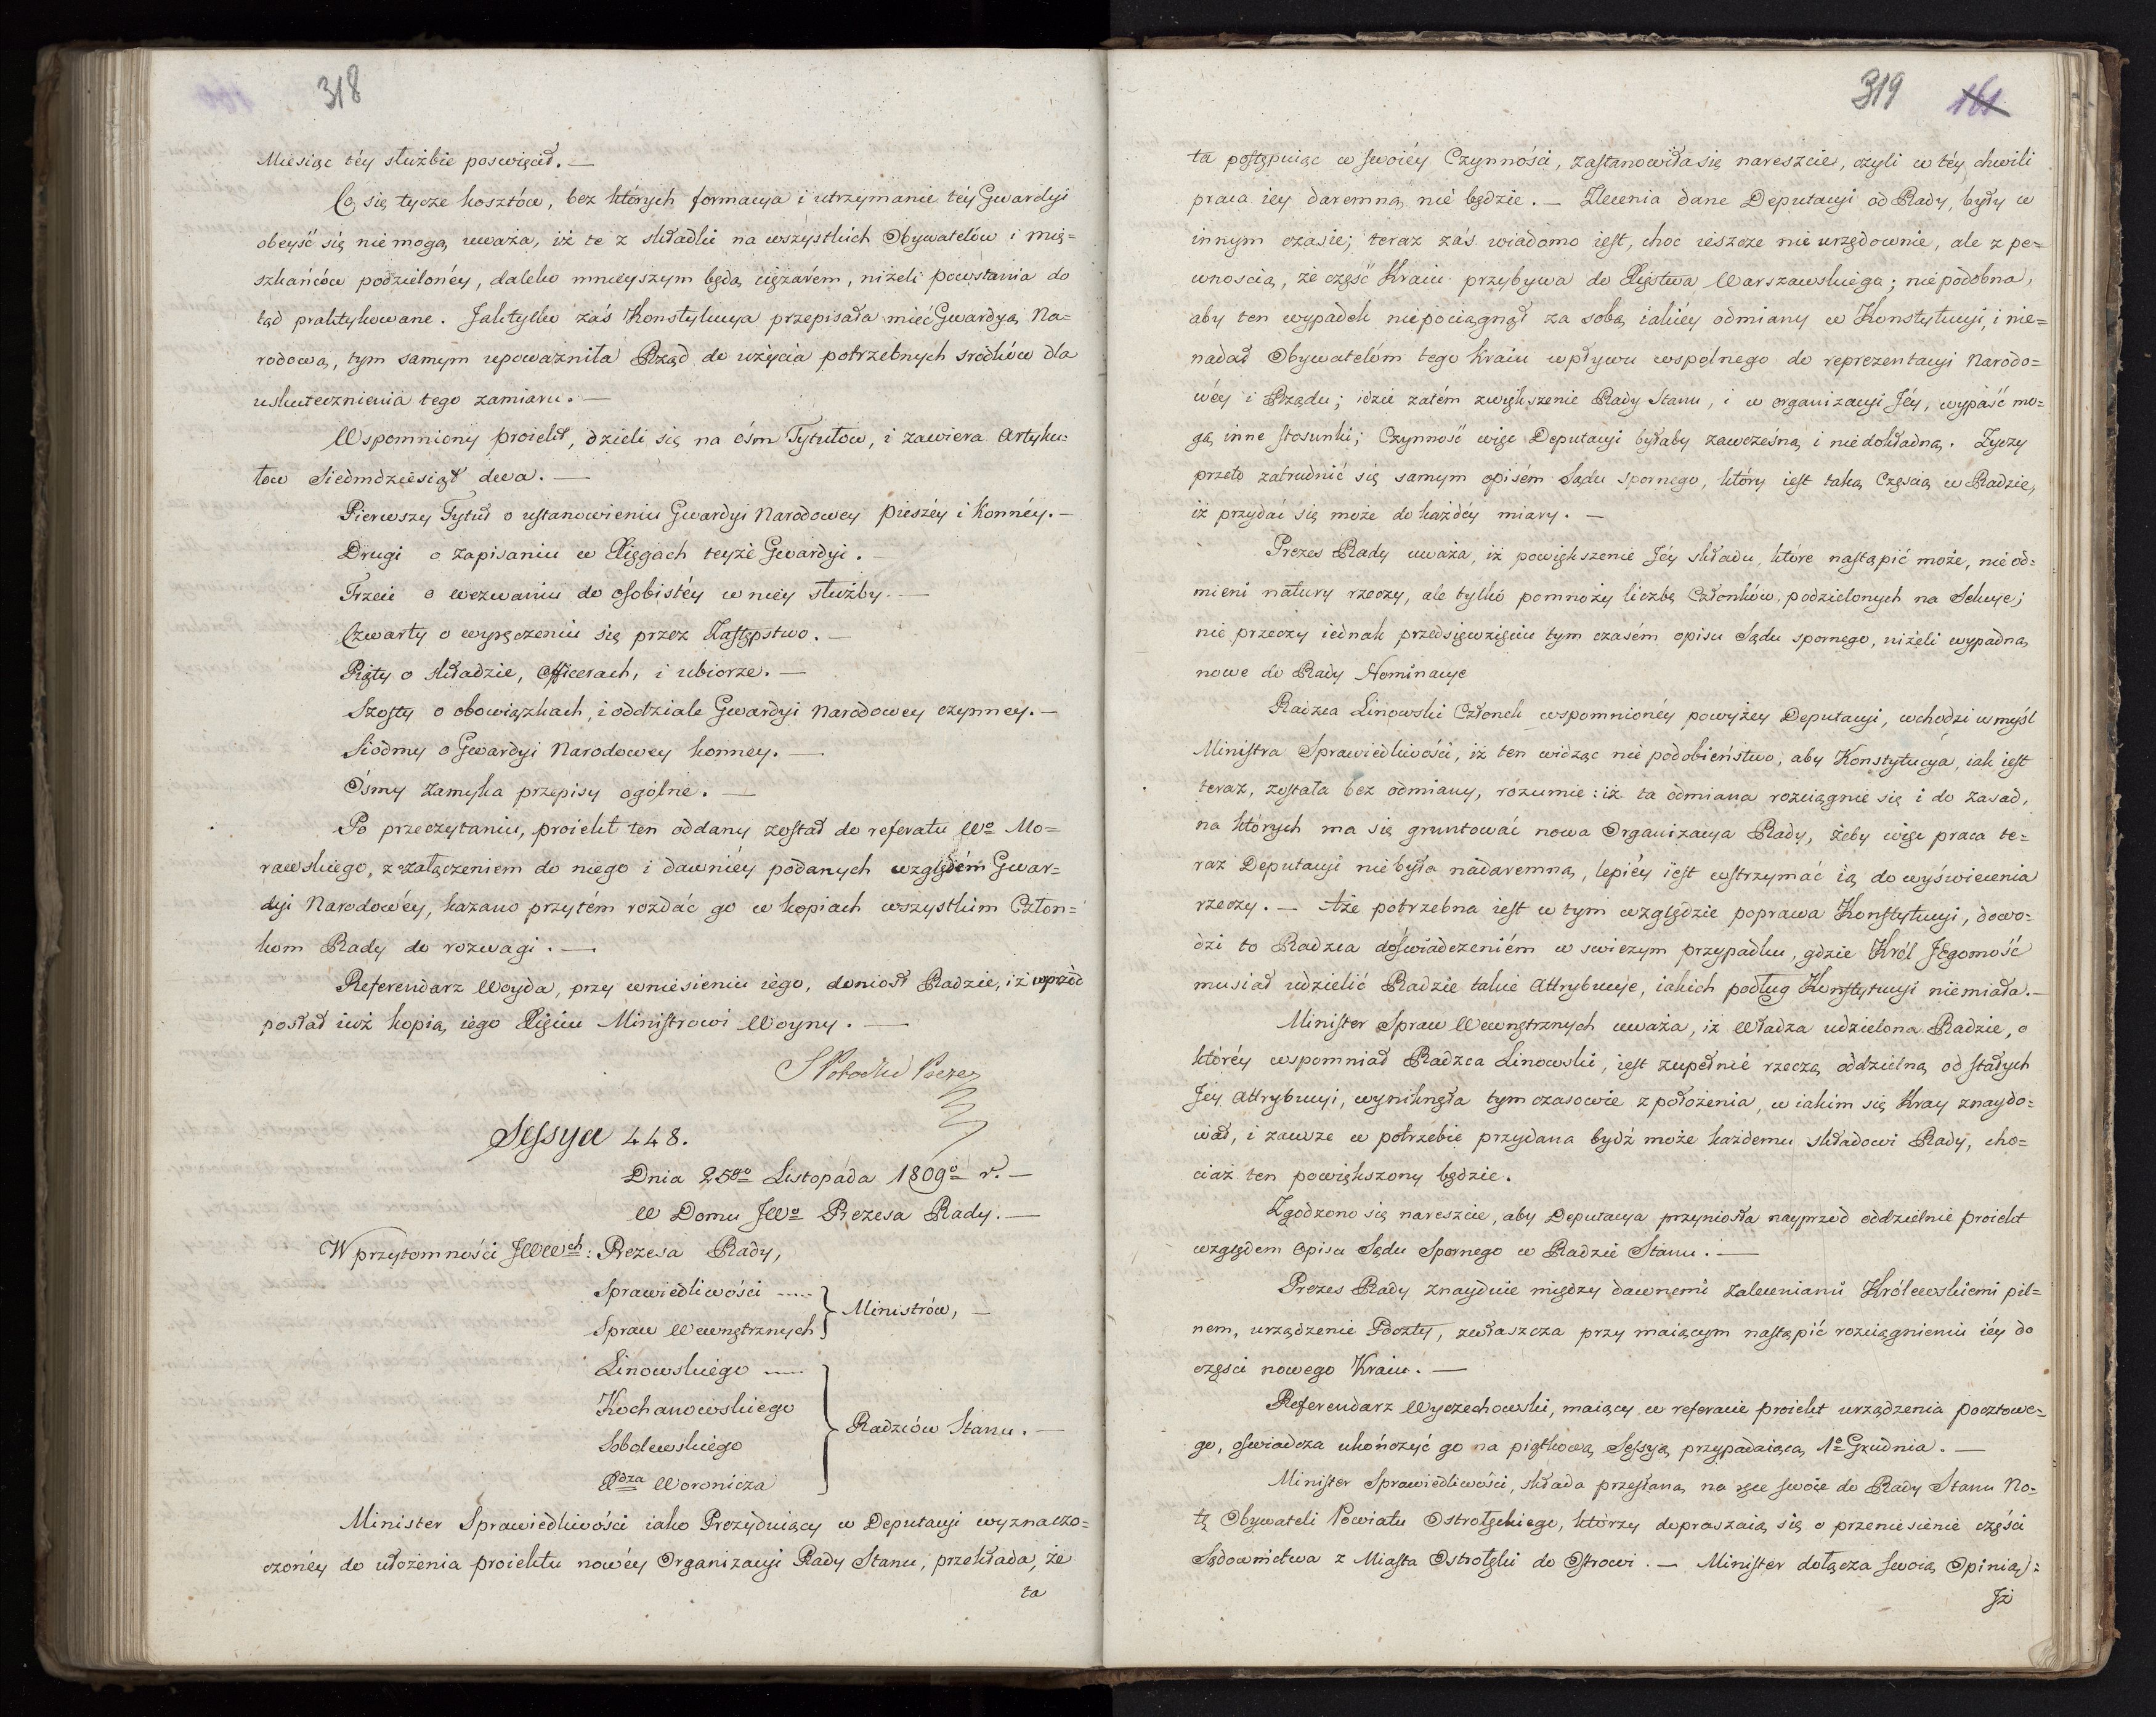 318
Miesiąc téy służbie poswięcił. —
Co się tycze kosztów, bez których formacya i utrzymanie téy Gwardyi
obeyść się nie mogą, uważa, iż te z składki na wszystkich Obywatelów i mię=
szkańców podzielonéy, daleko mnieyszym będą ciężarém, niżeli powstania do
tąd praktykowane. Jak tylko zaś Konstytucya przepisała mieć Gwardyą Na=
rodową, tym samym upoważniła Rząd do użycia potrzebnych srodków dla
uskutecznienia tego zamiaru. —
Wspomniony proiekt, dzieli się na óśm Tytułów, i zawiera Artyku=
łow Siedmdziesiąt dwa. —
Pierwszy Tytuł o ustanowieniu Gwardyi Narodowey pieszéy i Konnéy. —
Drugi o zapisaniu w Xięgach teyże Gwardyi. —
Trzeci o wezwaniu do osobistéy w niey służby. —
Czwarty o wyręczeniu się przez Zastępstwo. —
Piąty o składzie, Officerach, i ubiorze. —
Szosty o obowiązkach, i oddziale Gwardyi Narodowey czynney. —
Siódmy o Gwardyi Narodowey konney. —
Ósmy zamyka przepisy ogólne. —
Po przeczytaniu, proiekt ten oddany został do referatu Wo Mo=
rawskiego, z załączeniem do niego i dawniéy podanych względém Gwar=
dyi Narodowéy, kazano przytém rozdać go w kopiach wszystkim Człon=
kom Rady do rozwagi. —
Referendarz Woyda, przy wniesieniu iego, doniosł Radzie, iż wprzód
posłał iuż kopią iego Xięciu Ministrowi Woyny. —
S Potocki Prezes
Sessya 448.
Dnia 25go Listopada 1809go r. —
W Domu JWo Prezesa Rady. —
W przytomności JWWch: Prezesa Rady,
Sprawiedliwości ..... } Ministrów, —
Spraw Wewnętrznych
Linowskiégo ..... } Radzców Stanu. —
Kochanowskiego
Sobolewskiégo
Xdza Woronicza
Minister Sprawiedliwości iako Prezyduiący w Deputacyi wyznaczo=
czonéy do ułożenia proiektu nowéy Organizacyi Rady Stanu, przekłada, że
ta
319 161
ta postępuiąc w swoiéy Czynności, zastanowiła się nareszcie, czyli w téy chwili
praca iéy daremną nié będzie. — Zlecenia dane Deputacyi od Rady, były w
innym czasie; teraz zaś wiadomo iest, choc ieszcze nie urzędownie, ale z pe=
wnoscią, że część Kraiu przybywa do Xięstwa Warszawskiego; niepodobna,
aby ten wypadek niepociągnął za sobą iakiéy odmiany w Konstytucyi, i nie=
nadał Obywatelóm tego kraiu wpływu wspólnego do reprezentacyi Narodo=
wéy i Rządu; idzie zatém zwiększenie Rady Stanu, i w organizacyi Jéy, wypaść mo=
gą inne stosunki; Czynność więc Deputacyi byłaby zawcześną i niedokładną. Życzy
przeto zatrudnić się samym opisém Sądu spornego, który iest taką Częścią w Radzie,
iż przydać się może do każdéy miary. —
Prezes Rady uważa, iż powiększenie Jéy składu, które nastąpić może, nie od=
mieni natury rzeczy, ale tylko pomnoży liczbę Członków, podzielonych na Sekcye;
nie przeczy iednak przedsięwzięciu tym czasém opisu Sądu spornego, niżeli wypadną
nowe do Rady Nominacye
Radzca Linowski Członek wspomnionéy powyżey Deputacyi, wchodzi w myśl
Ministra Sprawiedliwości, iż ten widząc nie podobieństwo, aby Konstytucya, iak iest
teraz, została bez odmiany, rozumie: iż ta odmiana rozciągnie się i do zasad,
na których ma się gruntować nowa Organizacya Rady, żeby więc praca te=
raz Deputacyi nie była nadaremną, lepiéy iest wstrzymać ią do wyświecenia
rzeczy. — Aże potrzebna iest w tym względzie poprawa Konstytucyi, dowo=
dzi to Radzca doświadczeniém w swieżym przypadku, gdzie Król JEgomość
musiał udzielić Radzie takie Attrybucye, iakich podług Konstytucyi niemiała. —
Minister Spraw Wewnętrznych uważa, iż Władza udzielona Radzie, o
któréy wspomniał Radzca Linowski, iest zupełnié rzeczą oddzielną od stałych
Jéy Attrybucyi, wyniknęła tymczasowie z położenia, w iakim się Kray znaydo=
wał, i zawsze w potrzebie przydana bydź może każdemu składowi Rady, cho=
ciaż ten powiększony będzie.
Zgodzono się nareszcie, aby Deputacya przyniosła nayprzod oddzielnie proiekt
względem Opisu Sądu Spornego w Radzie Stanu. —
Prezes Rady znayduie między dawnemi zaleceniami Królewskiemi pil=
nem, urządzenie Poczty, zwłaszcza przy maiącym nastąpić rozciągnieniu iéy do
części nowego Kraiu. —
Referendarz Wyczechowski, maiący w referacie proiekt urządzenia pocztowe=
go, oświadcza ukończyć go na piątkową Sessyą przypadaiącą 1o Grudnia. —
Minister Sprawiedliwości, składa przesłaną na ręce swoie do Rady Stanu No=
tę Obywateli Powiatu Ostrołęckiego, którzy dopraszaią się o przeniesienie części
Sądownictwa z Miasta Ostrołęki do Ostrowi. — Minister dołącza swoią Opinią:
Jż